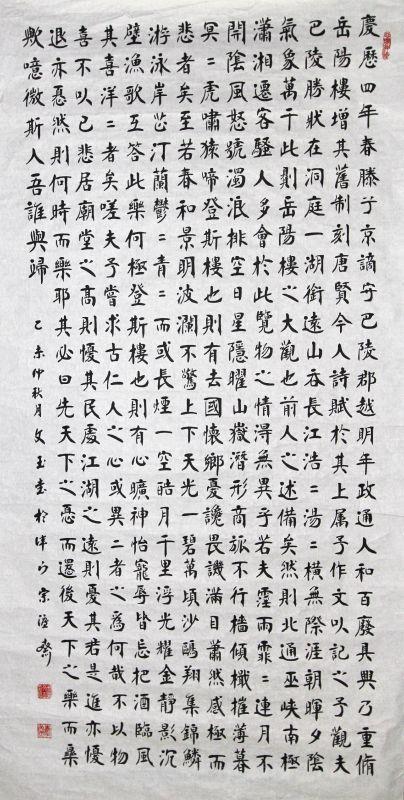 慶歷四年春滕子京謫守巴陵郡越明年政通人和百廢具興乃重脩
岳陽樓增其舊制刻唐賢今人詩賦於其上属予作文以記之予觀夫
巴陵勝狀在洞庭一湖銜遠山吞長江浩〻湯〻橫無際涯朝暉夕陰
氣象萬千此則岳陽樓之大觀也前人之述備矣然則北通巫峽南極
瀟湘遷客騷人多會於此覽物之情得無異乎若夫霪雨霏〻連月不
開陰風怒號濁浪排空日星隱曜山嶽潛形商旅不行檣傾檝摧薄暮
冥〻虎嘯猿啼登斯樓也則有去國懷鄉憂讒畏譏滿目蕭然感極而
悲者矣至若春和景明波瀾不驚上下天光一碧萬頃沙鷗翔集錦鱗
游泳岸芷汀蘭鬱〻青〻而或長煙一空皓月千里浮光耀金靜影沉
璧漁歌互答此樂何極登斯樓也則有心曠神怡寵辱皆忘把酒臨風
其喜洋〻者矣嗟夫予嘗求古仁人之心或異二者之為何哉不以物
喜不以己悲居廟堂之高則憂其民處江湖之遠則憂其君是進亦憂
退亦憂然則何時而樂耶其必曰先天下之憂而憂後天下之樂而樂
歟噫微斯人吾誰與歸
乙未仲秋月文玉書於津門崇齋